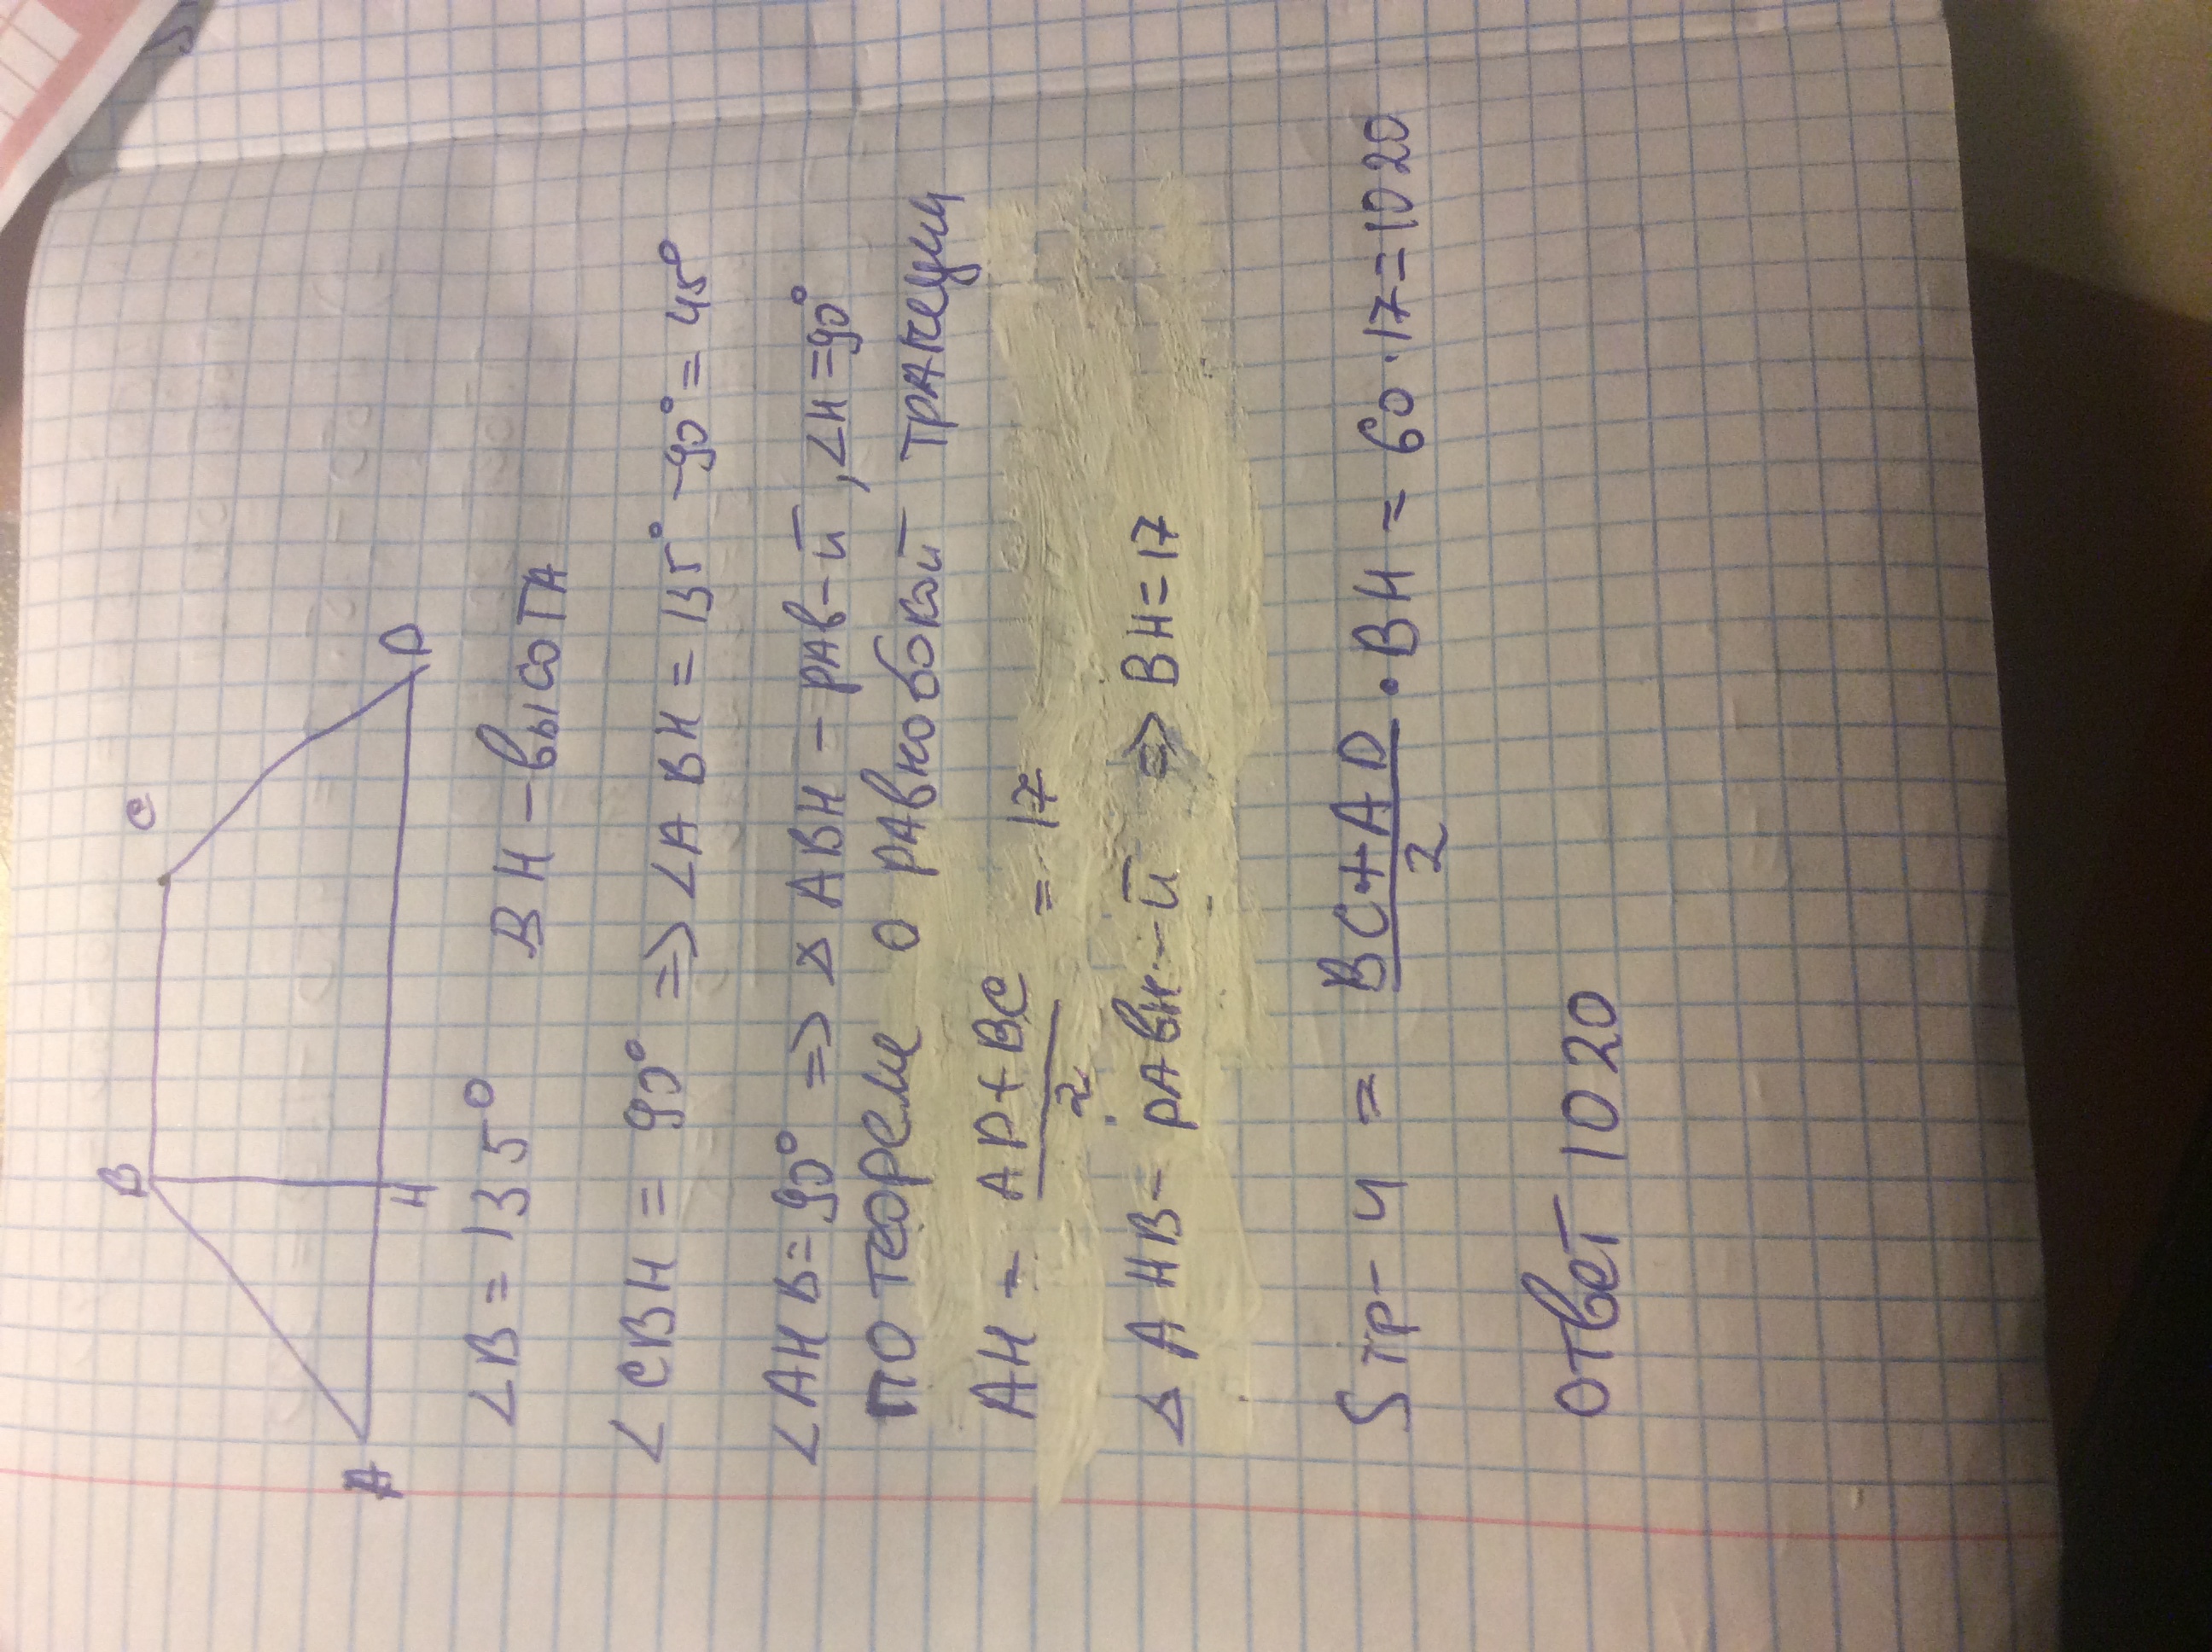 B C
A H D
∠B = 135° BH - высота
∠CBH = 90° => ∠ABH = 135° - 90° = 45°
∠AHB = 90° => △ABH - рав-й, ∠H = 90°
по теореме о равнобокой трапеции
AH = AD + BC / 2 = 17
△ AHB - равн-й => BH = 17
Sтр-ч = BC + AD / 2 · BH = 60 · 17 = 1020
ответ 1020